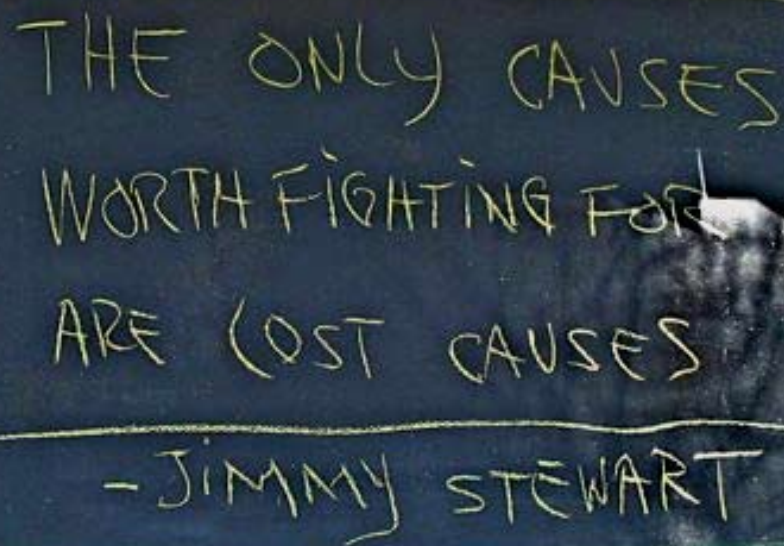 THE ONLY CAUSES
WORTH FIGHTING FOR
ARE LOST CAUSES
-JIMMY STEWART